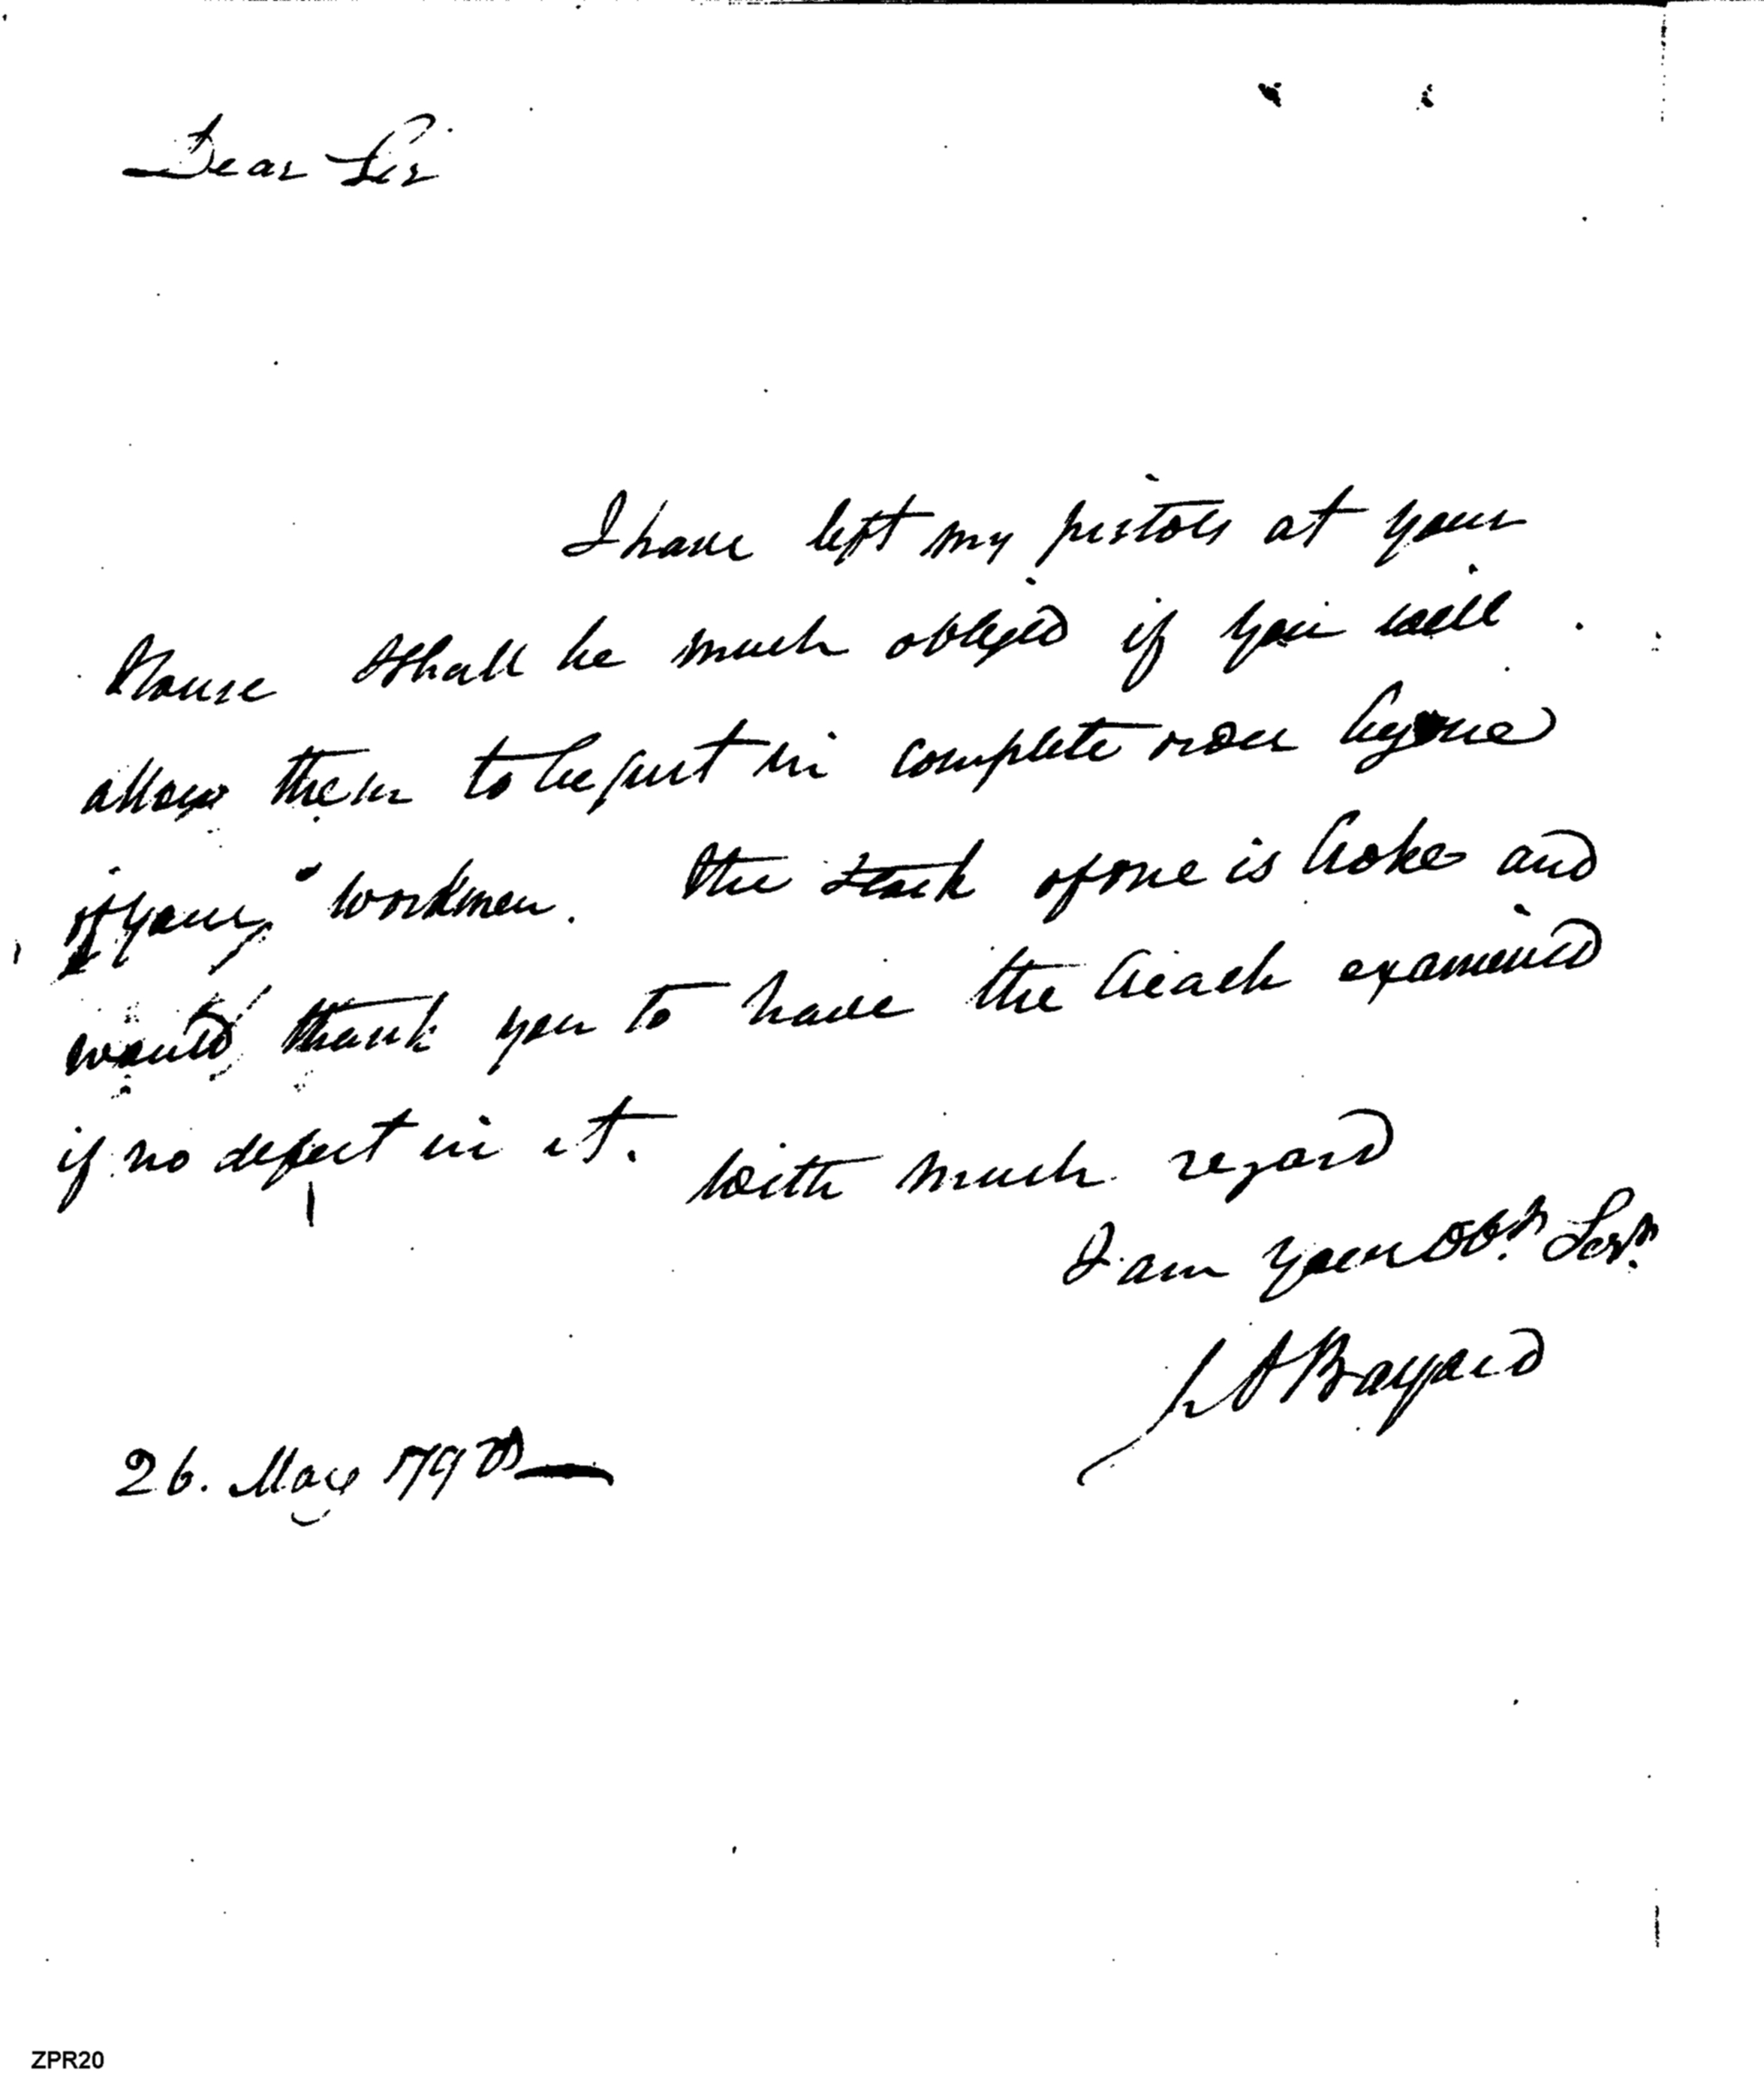 Dear Sir
I have left my pistols at your
House & shall be much obliged if you will
allow them to be put in complete order by one
of your workmen. The stock of one is broke and
would thank you to have the breach examined
if no defect in it. With much regard
I am your Obt. Servt.
Bayard
26. May 179
ZPR20